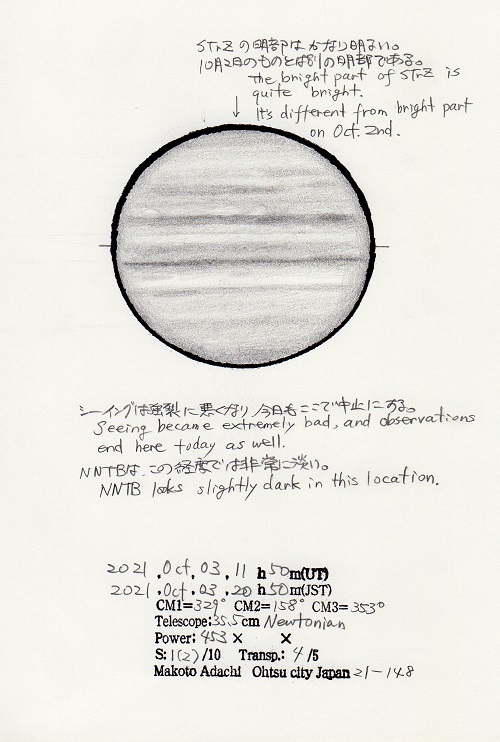 STrZの明部はかなり明るい。
10月2日のものとは別の明部である。
The bright part of STrZ is
quite bright.
It's different from bright part
on Oct. 2nd.
シーイングは強烈に悪くなり、今日もここで中止にする。
Seeing became extremely bad, and observations
end here today as well.
NNTBは、この経度では非常に淡い。
NNTB looks slightly dark in this location.
2021, Oct, 03, 11 h 50 m(UT)
2021, Oct, 03, 20 h 50 m(JST)
CM1= 329° CM2= 158° CM3= 353°
Telescope; 35.5 cm Newtonian
Power; 453 × ×
S: 1(2) /10 Transp.: 4 /5
Makoto Adachi Ohtsu city Japan 21-148